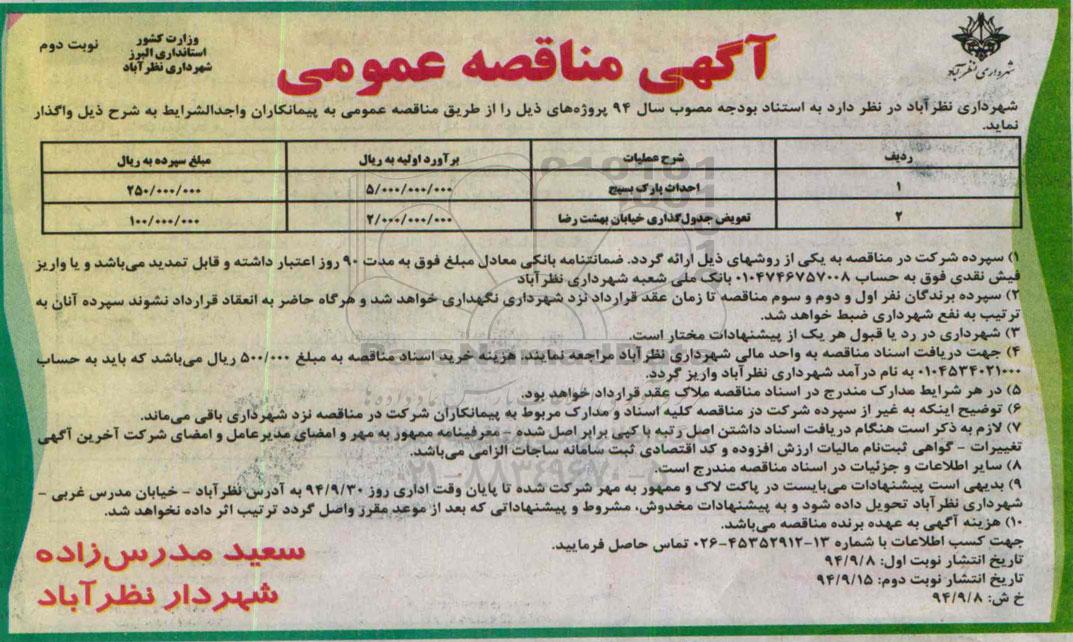 شهرداری نظرآباد
وزارت کشور
استانداری البرز
شهرداری نظرآباد
نوبت دوم
آگهی مناقصه عمومی
شهرداری نظرآباد در نظر دارد به استناد بودجه مصوب سال ۹۴ پروژه‌های ذیل را از طریق مناقصه عمومی به پیمانکاران واجدالشرایط به شرح ذیل واگذار
نماید.
ردیف شرح عملیات برآورد اولیه به ریال مبلغ سپرده به ریال
۱ احداث پارک بسیج ۵/۰۰۰/۰۰۰/۰۰۰ ۲۵۰/۰۰۰/۰۰۰
۲ تعویض جدول‌گذاری خیابان بهشت رضا ۲/۰۰۰/۰۰۰/۰۰۰ ۱۰۰/۰۰۰/۰۰۰
۱) سپرده شرکت در مناقصه به یکی از روشهای ذیل ارائه گردد. ضمانتنامه بانکی معادل مبلغ فوق به مدت ۹۰ روز اعتبار داشته و قابل تمدید می‌باشد و یا واریز
فیش نقدی فوق به حساب ۰۱۰۴۷۴۶۷۵۷۰۰۸ بانک ملی شعبه شهرداری نظرآباد
۲) سپرده برندگان نفر اول و دوم و سوم مناقصه تا زمان عقد قرارداد نزد شهرداری نگهداری خواهد شد و هرگاه حاضر به انعقاد قرارداد نشوند سپرده آنان به
ترتیب به نفع شهرداری ضبط خواهد شد.
۳) شهرداری در رد یا قبول هر یک از پیشنهادات مختار است.
۴) جهت دریافت اسناد مناقصه به واحد مالی شهرداری نظرآباد مراجعه نمایند. هزینه خرید اسناد مناقصه به مبلغ ۵۰۰/۰۰۰ ریال می‌باشد که باید به حساب
۰۱۰۴۵۳۴۰۲۱۰۰۰ به نام درآمد شهرداری نظرآباد واریز گردد.
۵) در هر شرایط مدارک مندرج در اسناد مناقصه ملاک عقد قرارداد خواهد بود.
۶) توضیح اینکه به غیر از سپرده شرکت در مناقصه کلیه اسناد و مدارک مربوط به پیمانکاران شرکت در مناقصه نزد شهرداری باقی می‌ماند.
۷) لازم به ذکر است هنگام دریافت اسناد داشتن اصل رتبه با کپی برابر اصل شده - معرفینامه ممهور به مهر و امضای مدیرعامل و امضای شرکت آخرین آگهی
تغییرات - گواهی ثبت‌نام مالیات ارزش افزوده و کد اقتصادی ثبت سامانه ساجات الزامی می‌باشد.
۸) سایر اطلاعات و جزئیات در اسناد مناقصه مندرج است.
۹) بدیهی است پیشنهادات می‌بایست در پاکت لاک و ممهور به مهر شرکت شده تا پایان وقت اداری روز ۹۴/۹/۳۰ به آدرس نظرآباد - خیابان مدرس غربی -
شهرداری نظرآباد تحویل داده شود و به پیشنهادات مخدوش، مشروط و پیشنهاداتی که بعد از موعد مقرر واصل گردد ترتیب اثر داده نخواهد شد.
۱۰) هزینه آگهی به عهده برنده مناقصه می‌باشد.
جهت کسب اطلاعات با شماره ۱۳-۴۵۳۵۲۹۱۲-۰۲۶ تماس حاصل فرمایید.
تاریخ انتشار نوبت اول: ۹۴/۹/۸
تاریخ انتشار نوبت دوم: ۹۴/۹/۱۵
خ ش: ۹۴/۹/۸
سعید مدرس‌زاده
شهردار نظرآباد